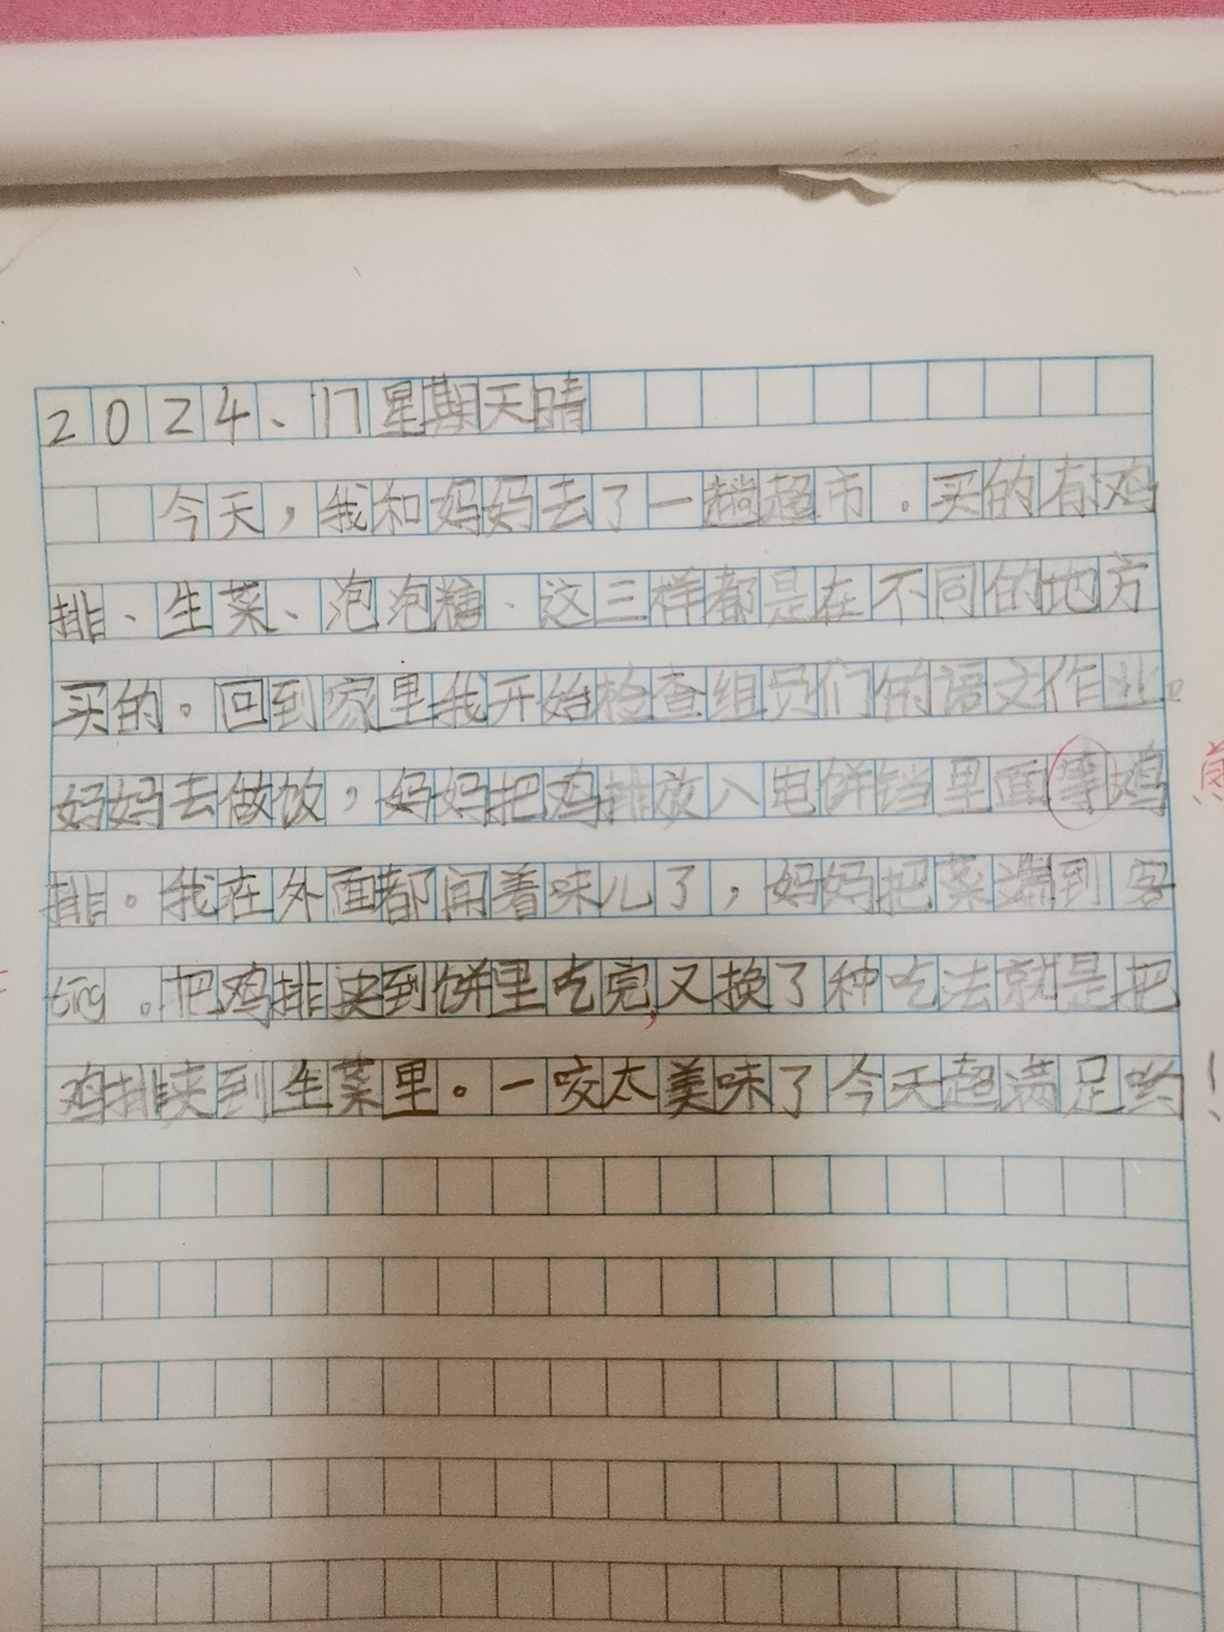 2024、17星期天晴
今天，我和妈妈去了一趟超市．买的有鸡
排、生菜、泡泡糖、这三样都是在不同的地方
买的。回到家里我开始检查组员们的语文作业。
妈妈去做饭，妈妈把鸡排放入电饼铛里面等鸡
排。我在外面都闻着味儿了，妈妈把菜端到客
tīng。把鸡排夹到饼里吃完,又换了种吃法就是把
鸡排夹到生菜里。一咬太美味了今天超满足哟！